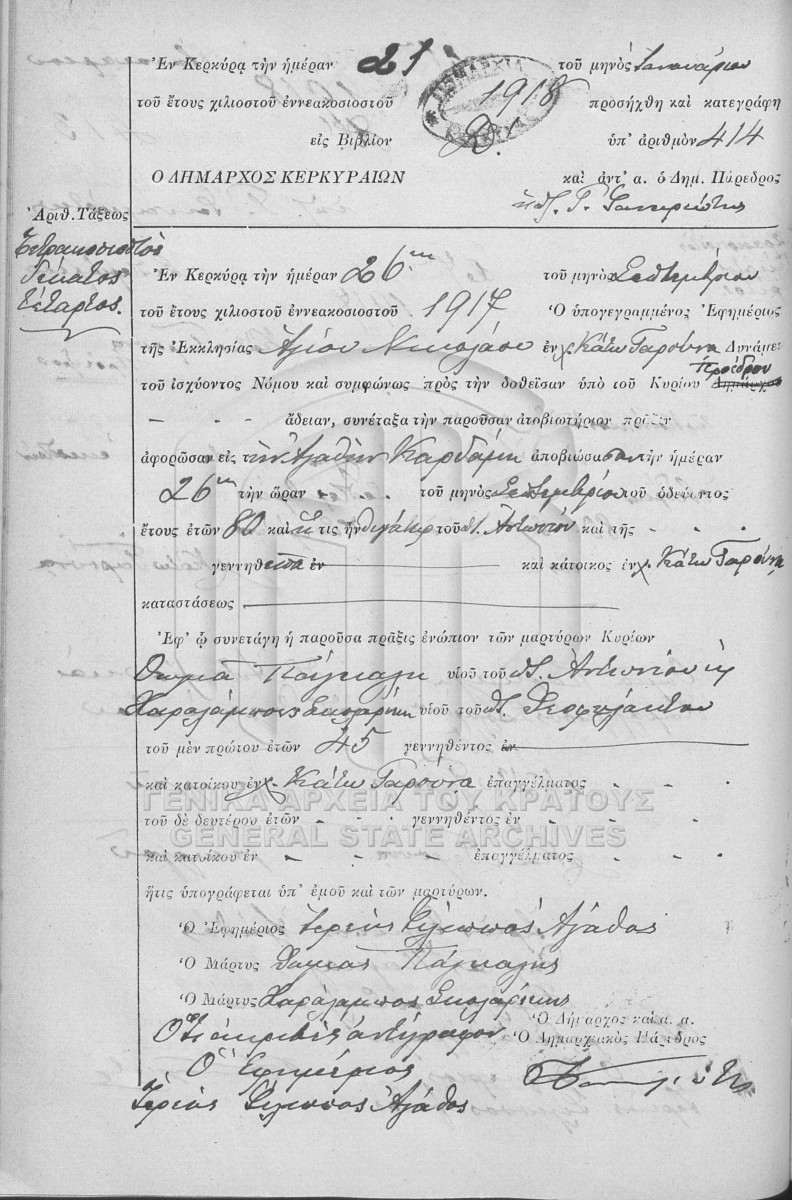 Ἐν Κερκύρᾳ τὴν ἡμέραν 21 τοῦ μηνὸς Ἰανουάριου
τοῦ ἔτους χιλιοστοῦ ἐννεακοσιοστοῦ 1918 προσήχθη καὶ κατεγράφη
εἰς Βιβλίον ὑπ' ἀριθμὸν 414
Ο ΔΗΜΑΡΧΟΣ ΚΕΡΚΥΡΑΙΩΝ καὶ ἀντ' α. ὁ Δημ. Πάρεδρος
ΔΗΜΑΡΧΙΑ
Ἀριθ. Τάξεως
Τετρακοσιοστὸς
Δέκατος
Τέταρτος.
Ἐν Κερκύρᾳ τὴν ἡμέραν 26ην τοῦ μηνὸς Σεπτεμβρίου
τοῦ ἔτους χιλιοστοῦ ἐννεακοσιοστοῦ 1917 Ὁ ὑπογεγραμμένος Ἐφημέριος
τῆς Ἐκκλησίας Ἁγίου Νικολάου ἐν χ. Κάτω Γαρούνα Δυνάμει
τοῦ ἰσχύοντος Νόμου καὶ συμφώνως πρὸς τὴν δοθεῖσαν ὑπὸ τοῦ Κυρίου Δημάρχου Προέδρου
- - - ἄδειαν, συνέταξα τὴν παροῦσαν ἀποβιωτήριον πρᾶξιν
ἀφορῶσαν εἰς τὴν Ἀγαθὴν Καρδάμη ἀποβιώσασαν τὴν ἡμέραν
26ην τὴν ὥραν - - . τοῦ μηνὸς Σεπτεμβρίου τοῦ ὁδεύοντος
ἔτους ἐτῶν 80 καὶ ἥτις ἦν θυγάτηρ τοῦ π. Ἀντωνίου καὶ τῆς - -
γεννηθεῖσα ἐν καὶ κάτοικος ἐν χ. Κάτω Γαρούνα
καταστάσεως
Ἐφ' ᾧ συνετάγη ἡ παροῦσα πρᾶξις ἐνώπιον τῶν μαρτύρων Κυρίων
Θωμᾶ Πάγκαλη υἱοῦ τοῦ π. Ἀντωνίου κ
Χαραλάμπους Σκολαρίκη υἱοῦ τοῦ π. Θεοφυλάκτου
τοῦ μὲν πρώτου ἐτῶν 45 γεννηθέντος ἐν
καὶ κατοίκου ἐν χ. Κάτω Γαρούνα ἐπαγγέλματος - - -
ΓΕΝΙΚΑ ΑΡΧΕΙΑ ΤΟΥ ΚΡΑΤΟΥΣ
τοῦ δὲ δευτέρου ἐτῶν - - γεννηθέντος ἐν - - -
GENERAL STATE ARCHIVES
καὶ κατοίκου ἐν - - - - ἐπαγγέλματος - - -
ἥτις ὑπογράφεται ὑπ' ἐμοῦ καὶ τῶν μαρτύρων.
Ὁ Ἐφημέριος Ἱερεὺς Φίλιππος Ἀγάθος
Ὁ Μάρτυς Θωμᾶς Πάγκαλης
Ὁ Μάρτυς Χαράλαμπος Σκολαρίκης
Ὁ Δήμαρχος καὶ α. α.
Ὅτι ἀκριβὲς ἀντίγραφον Ὁ Δημαρχιακὸς Πάρεδρος
Ὁ Ἐφημέριος
Ἱερεὺς Φίλιππος Ἀγάθος